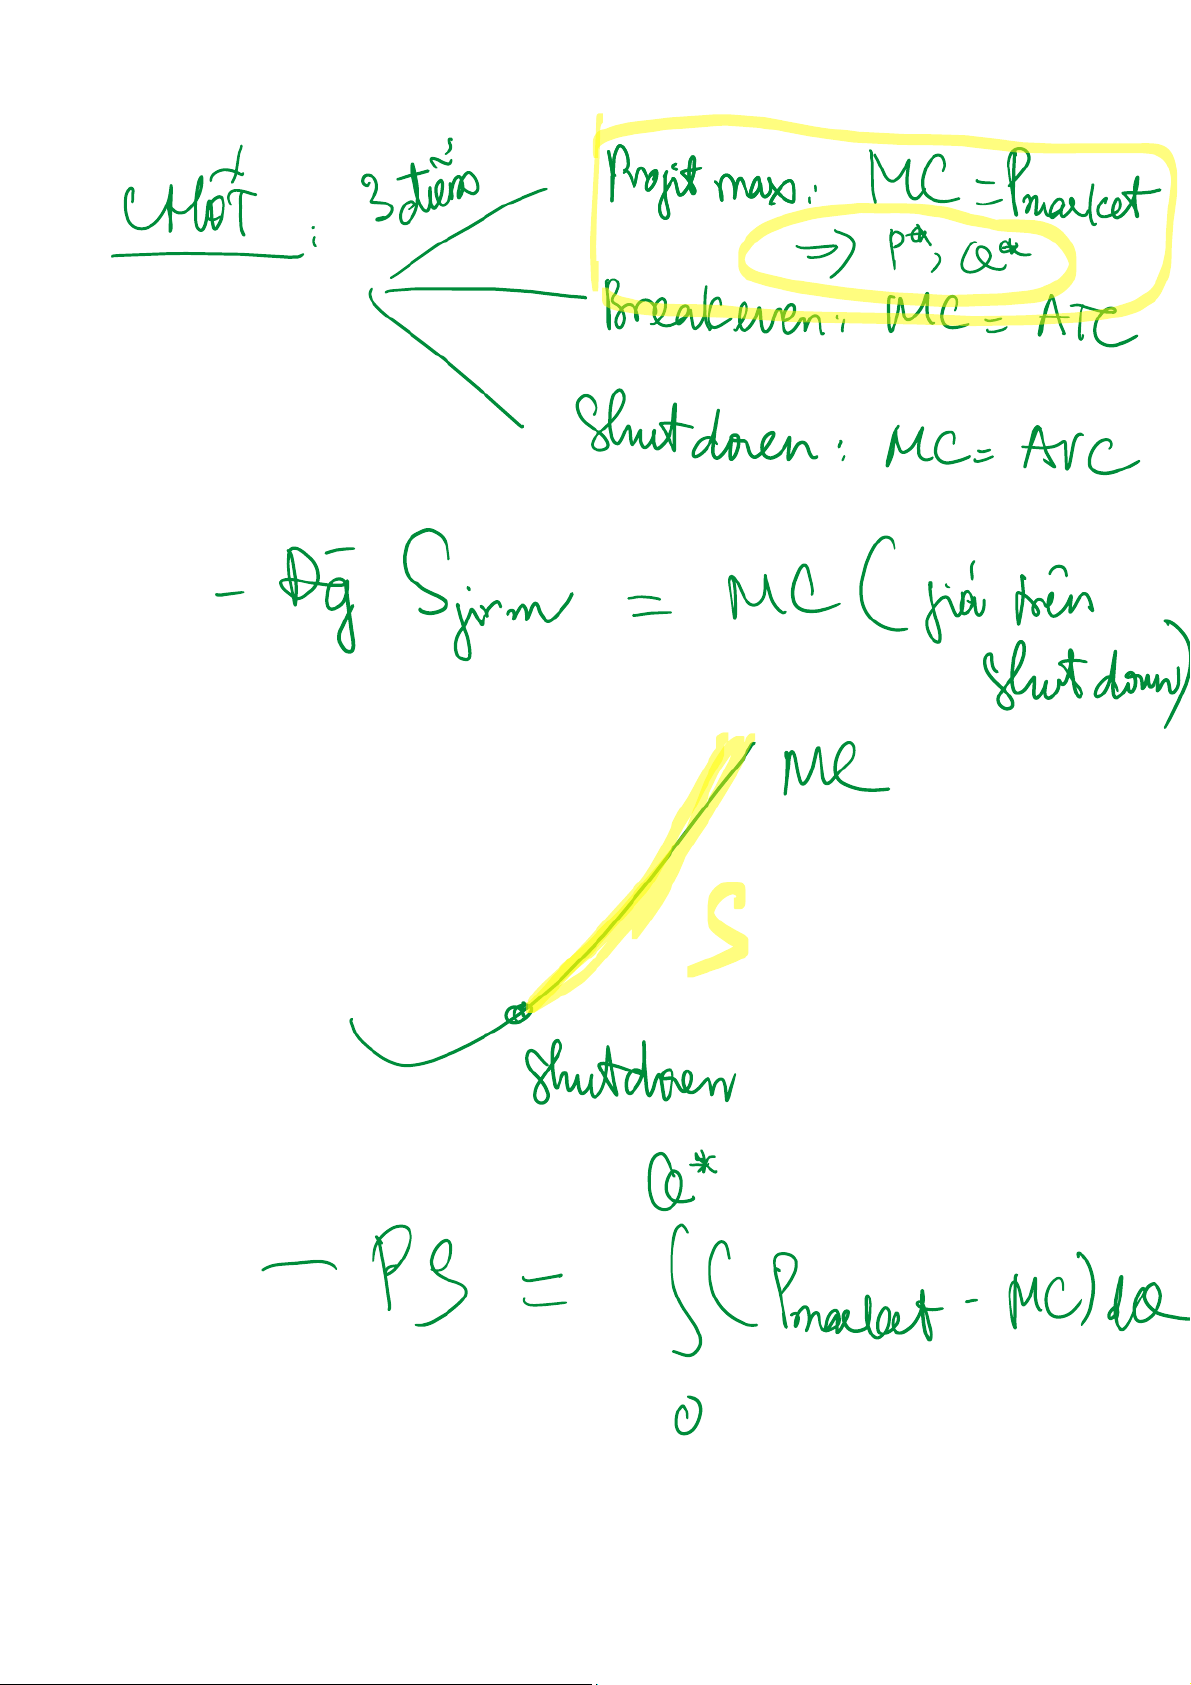 CHỐT : 3 điểm
Profit max: MC = Pmarket
=> P*, Q*
Breakeven: MC = ATC
Shutdown: MC = AVC
- Đg Sfirm = MC (giới trên
shutdown)
MC
S
shutdown
Q*
- PS = ∫ (Pmarket - MC) dQ
0